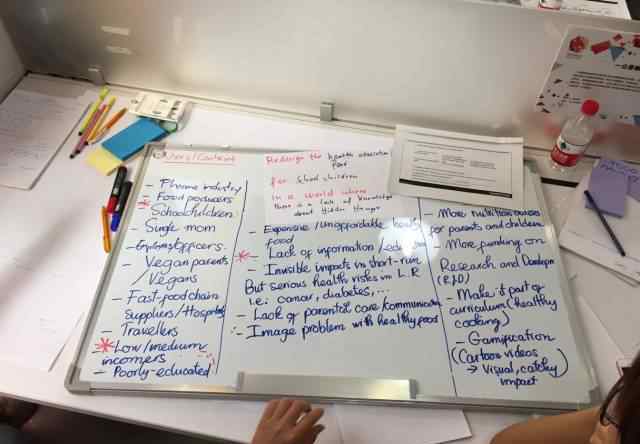 Users/Context
- Pharma industry
- Food producers
* Schoolchildren
- Single mom
officers
- Vegan parents
/ Vegans
- Fast-food chain
Suppliers/Hospitals
- Travellers
* Low/medium
incomers
- Poorly-educated
Redesign the health education
for School children
In a world where
there is a lack of knowledge
about Hidden Hunger
- Expensive / Unaffordable healthy
food
* - Lack of information /
- Invisible impacts in short-run
But serious health risks in L.R
i.e: cancer, diabetes, ...
- Lack of parental care/communication
- Image problem with healthy food
- More nutrition courses
for parents and children
- More funding on
Research and Development
(R&D)
- Make it part of
curriculum (healthy
cooking)
- Gamification
(Cartoon videos
→ Visual, catchy)
impact